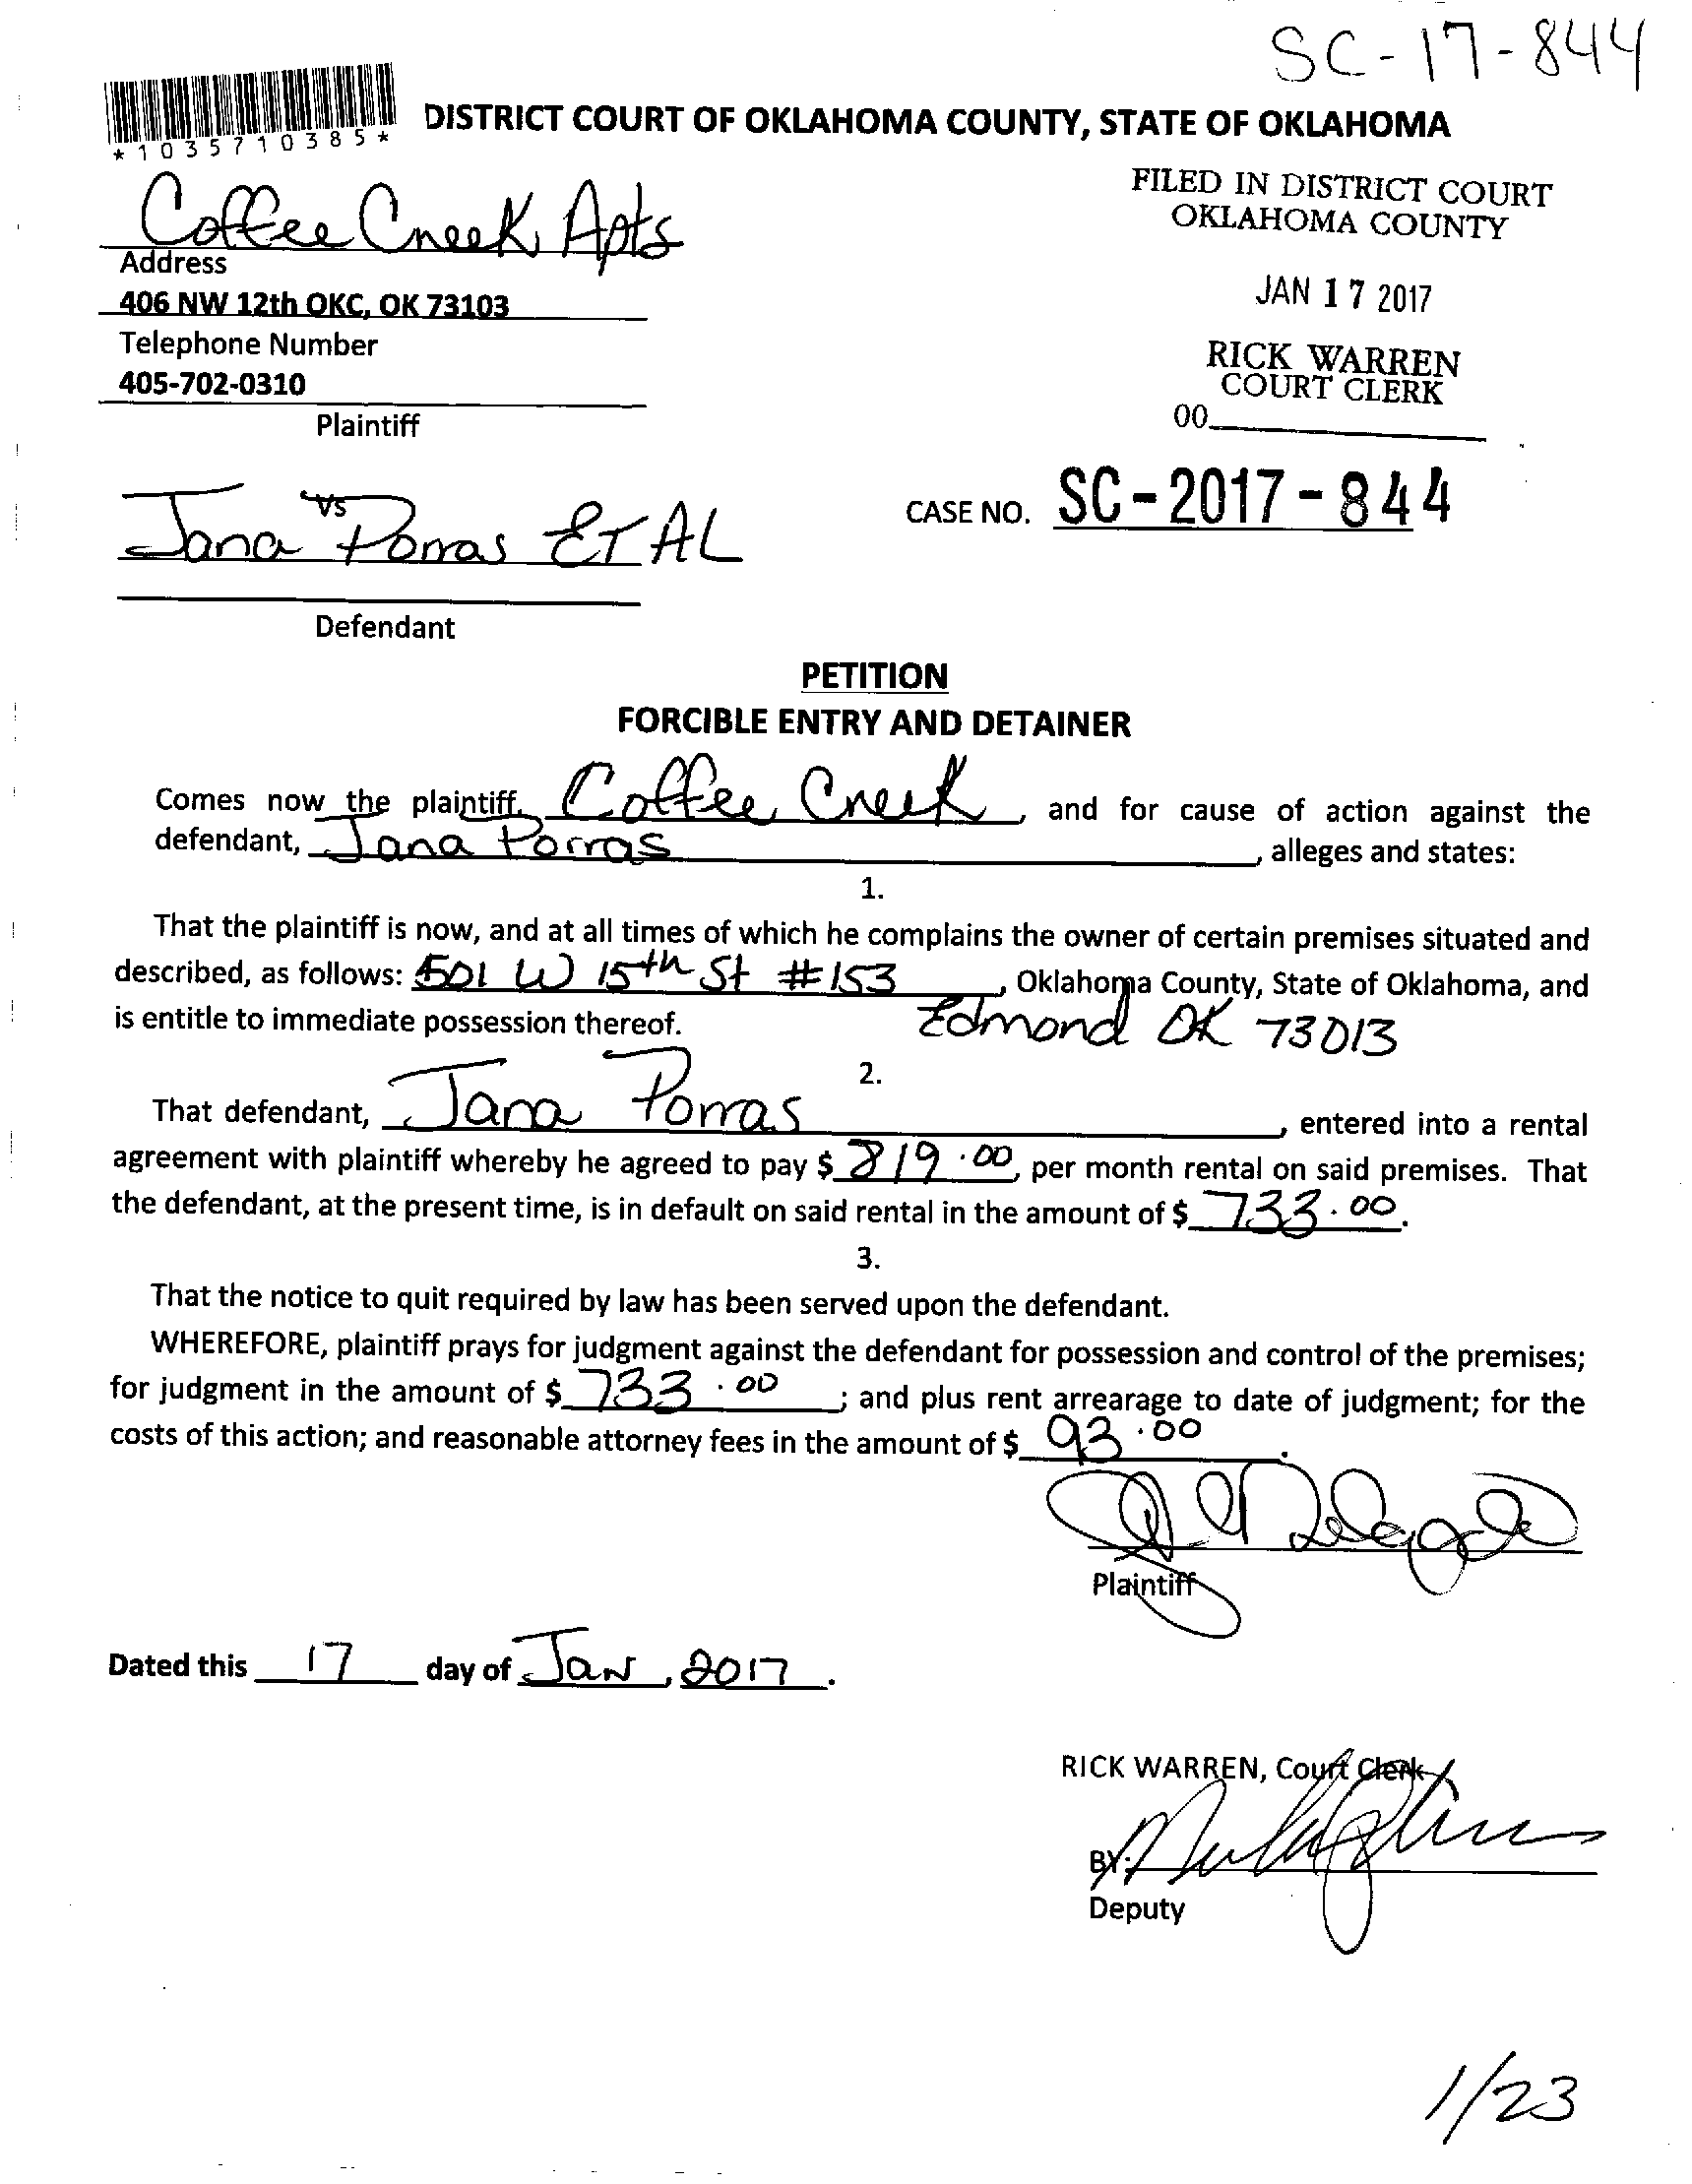 SC-17-844
*1035710385*
DISTRICT COURT OF OKLAHOMA COUNTY, STATE OF OKLAHOMA
Coffee Creek Apts
Address
406 NW 12th OKC, OK 73103
Telephone Number
405-702-0310
Plaintiff
FILED IN DISTRICT COURT
OKLAHOMA COUNTY
JAN 17 2017
RICK WARREN
COURT CLERK
00
vs
Jana Porras ET AL
Defendant
CASE NO. SC-2017-844
PETITION
FORCIBLE ENTRY AND DETAINER
Comes now the plaintiff, Coffee Creek, and for cause of action against the
defendant, Jana Porras, alleges and states:
1.
That the plaintiff is now, and at all times of which he complains the owner of certain premises situated and
described, as follows: 501 W 15th St #153, Oklahoma County, State of Oklahoma, and
is entitle to immediate possession thereof. Edmond OK 73013
2.
That defendant, Jana Porras, entered into a rental
agreement with plaintiff whereby he agreed to pay $ 819.00, per month rental on said premises. That
the defendant, at the present time, is in default on said rental in the amount of $ 733.00.
3.
That the notice to quit required by law has been served upon the defendant.
WHEREFORE, plaintiff prays for judgment against the defendant for possession and control of the premises;
for judgment in the amount of $ 733.00; and plus rent arrearage to date of judgment; for the
costs of this action; and reasonable attorney fees in the amount of $ 93.00.
Plaintiff
Dated this 17 day of Jan, 2017.
RICK WARREN, Court Clerk
BY:
Deputy
1/23